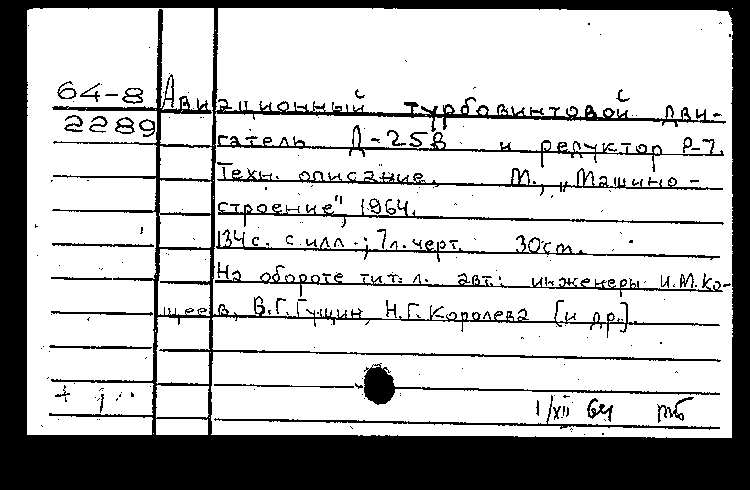 64-8 Авиационный турбовинтовой дви-
2289 гатель Д-25В и редуктор Р-7.
Техн. описание. М., „Машино-
строение", 1964.
134 с. с илл.; 7 л. черт. 30 см.
На обороте тит. л. авт.: инженеры И.М. Ко-
щеев, В.Г. Гущин, Н.Г. Королева [и др.]
1/XII 64